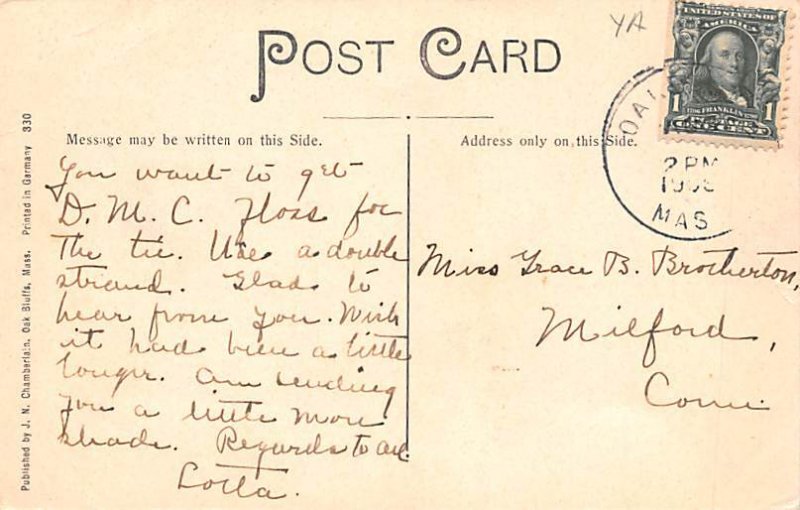 POST CARD
YA
UNITED STATES OF
AMERICA
1 FRANKLIN 1
POSTAGE
ONE CENT
OAK
2 PM
MAS
Message may be written on this Side.
Address only on this Side.
You want to get
D. M. C. Floss for
the tie. Use a double
strand. Glad to
hear from you. Wish
it had been a little
longer. Am sending
you a little more
shade. Regards to all.
Lotta.
Miss Grace B. Brotherton,
Milford,
Conn.
Published by J. N. Chamberlain, Oak Bluffs, Mass. Printed in Germany 330